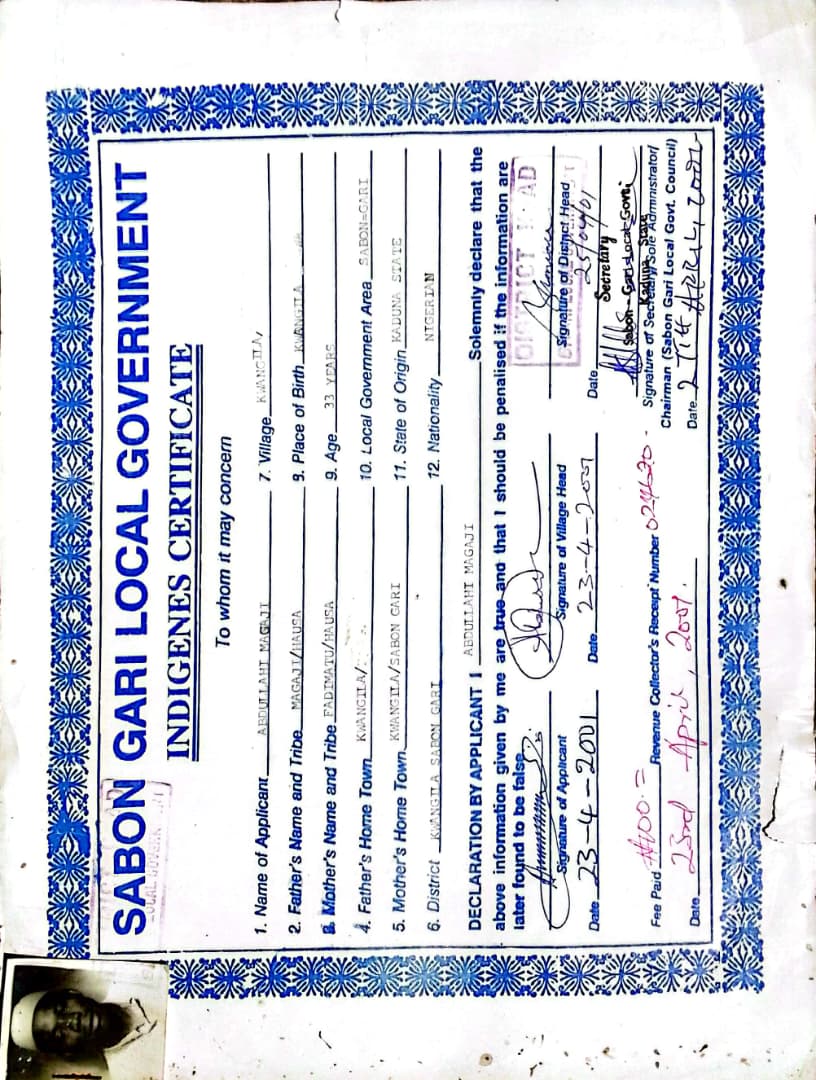 SABON GARI LOCAL GOVERNMENT
INDIGENES CERTIFICATE
To whom it may concern
1. Name of Applicant ABDULLAHI MAGAJI
2. Father's Name and Tribe MAGAJI/HAUSA
3. Mother's Name and Tribe FADIMATU/HAUSA
4. Father's Home Town KWANGILA/
5. Mother's Home Town KWANGILA/SABON GARI
6. District KWANGILA SABON GARI
7. Village KWANGILA,
9. Place of Birth KWANGILA
9. Age 33 YEARS
10. Local Government Area SABON=GARI
11. State of Origin KADUNA STATE
12. Nationality NIGERIAN
DECLARATION BY APPLICANT I ABDULLAHI MAGAJI Solemnly declare that the
above information given by me are true and that I should be penalised if the information are
later found to be false.
Signature of Applicant
Date 23-4-2001
Signature of Village Head
Date 23-4-2001
DISTRICT HEAD
Signature of District Head
Date 25/04/01
Fee Paid ₦100=
Revenue Collector's Receipt Number
Date 23rd April, 2001.
Secretary
Sabon-Gari Local Govt;
Kaduna State
Signature of Secretary/Sole Administrator/
Chairman (Sabon Gari Local Govt. Council)
Date APRIL, 2001